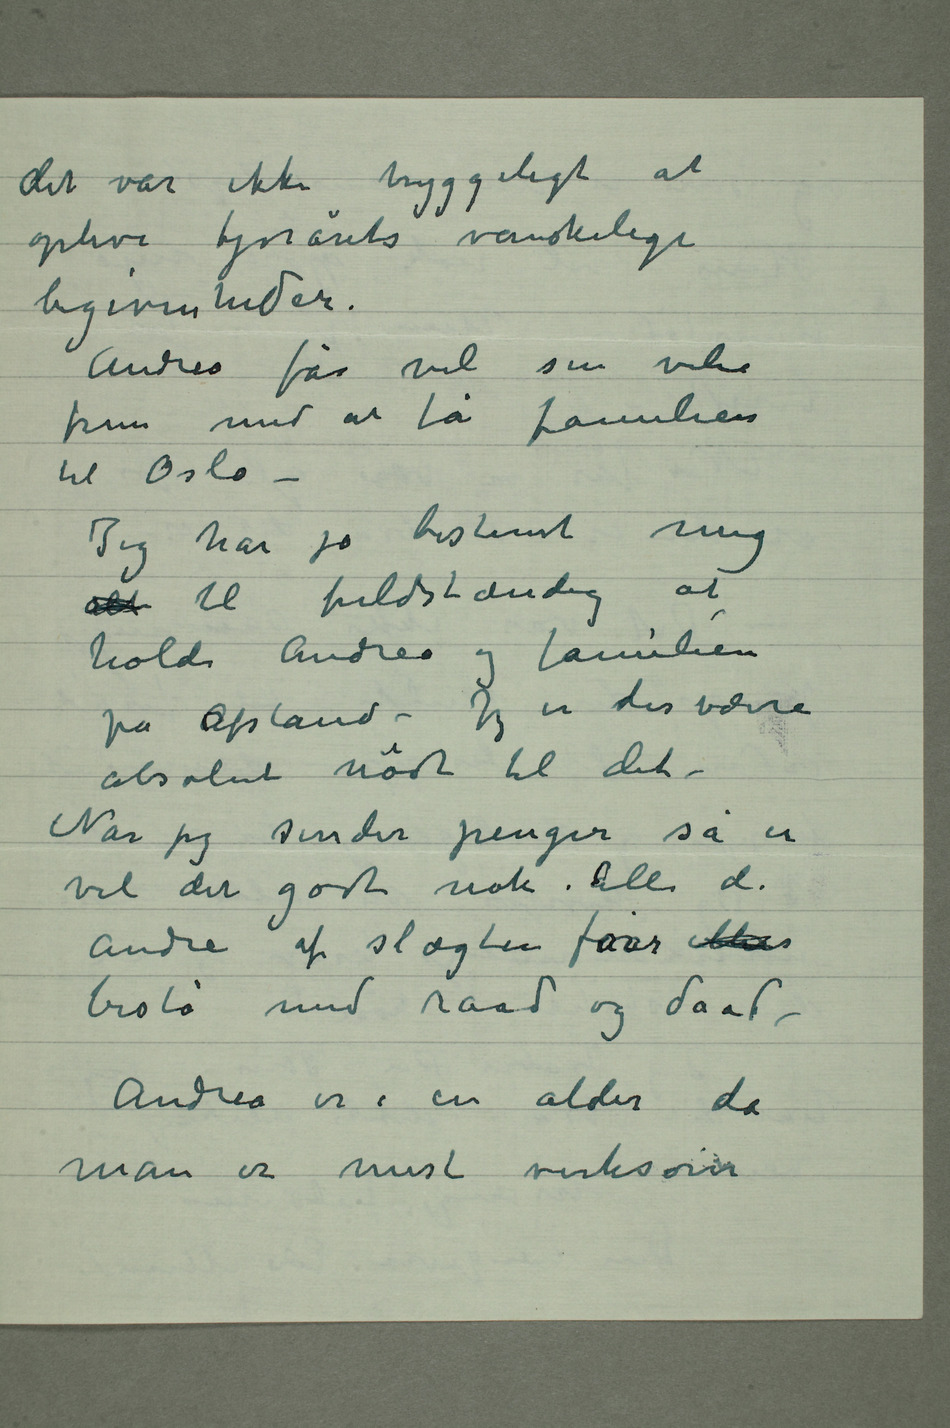 det var ikke hyggeligt at
opleve fjorårets vanskelige
begivenheder.
Andrea får vel sin vilie
frem med at få familien
til Oslo –
Jeg har jo bestemt mig
alt til fuldstændig at
holde Andrea og familien
på Afstand – Jg er desværre
absolut nödt til det –
Når jeg sender penger så er
vel det godt nok. Alle d.
andre af slægten fåar
bistå med raad og daad –
Andrea er i en alder da
man er mest virksom